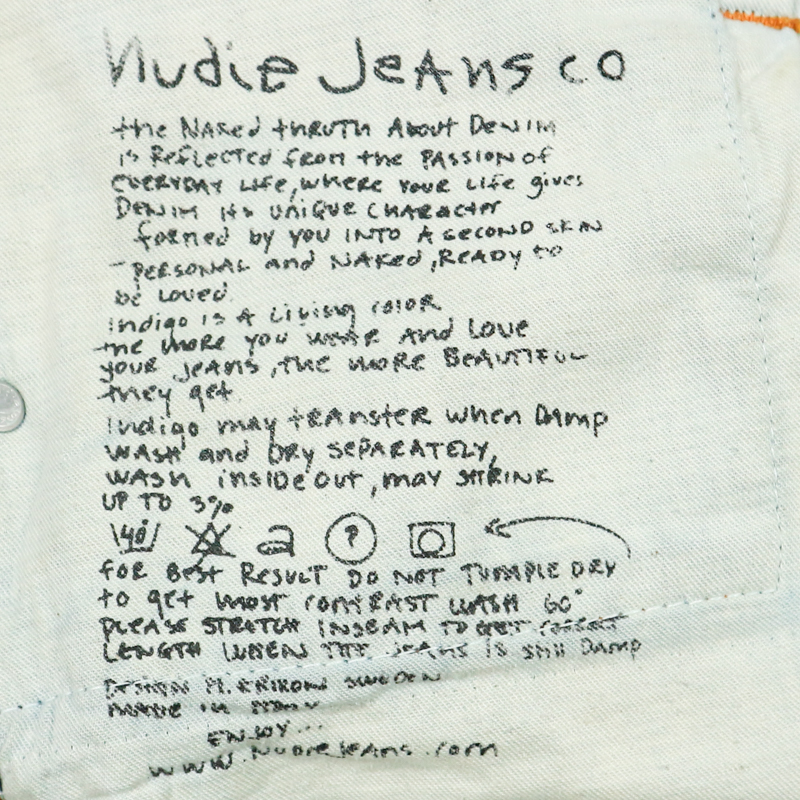 Nudie Jeans co
the Naked thruth About Denim
is Reflected from the passion of
everyday life, where your life gives
Denim its unique character
formed by you into a second skin
- personal and naked, ready to
be loved.
Indigo is a living color
the more you wear and love
your jeans, the more beautiful
they get.
Indigo may transfer when Damp
wash and Dry separately,
wash inside out, may shrink
up to 3%
40 P
for Best Result Do not tumple Dry
to get most contrast wash 60°
please stretch inseam to get correct
length when the jeans is still Damp
Design M. Erixon Sweden
made in Italy
Enjoy...
www.Nudiejeans.com